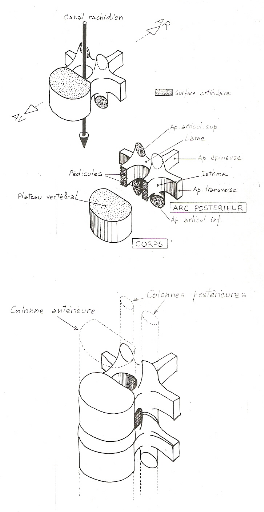 Canal rachidien
Ar
Av
Surface articulaire
Ap articul sup
Lame
Ap épineuse
Pédicules
Isthme
Plateau vertébral
Ap transverse
ARC POSTERIEUR
Ap articul inf
CORPS
Colonnes postérieures
Colonne antérieure